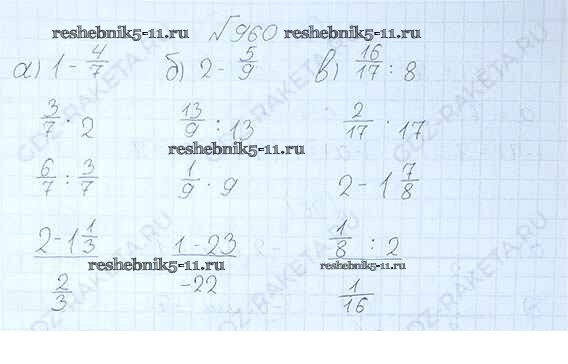 reshebnik5-11.ru √960 reshebnik5-11.ru
а) 1 - 4/7 б) 2 - 5/9 в) 16/17 : 8
3/7 · 2 13/9 : 13 2/17 · 17
reshebnik5-11.ru
6/7 : 3/7 1/9 · 9 2 - 1 7/8
2 - 1 1/3 1 - 23 1/8 : 2
reshebnik5-11.ru reshebnik5-11.ru reshebnik5-11.ru
2/3 -22 1/16
GDZ-RAKETA.RU
GDZ-RAKETA.RU
GDZ-RAKETA.RU
GDZ-RAKETA.RU